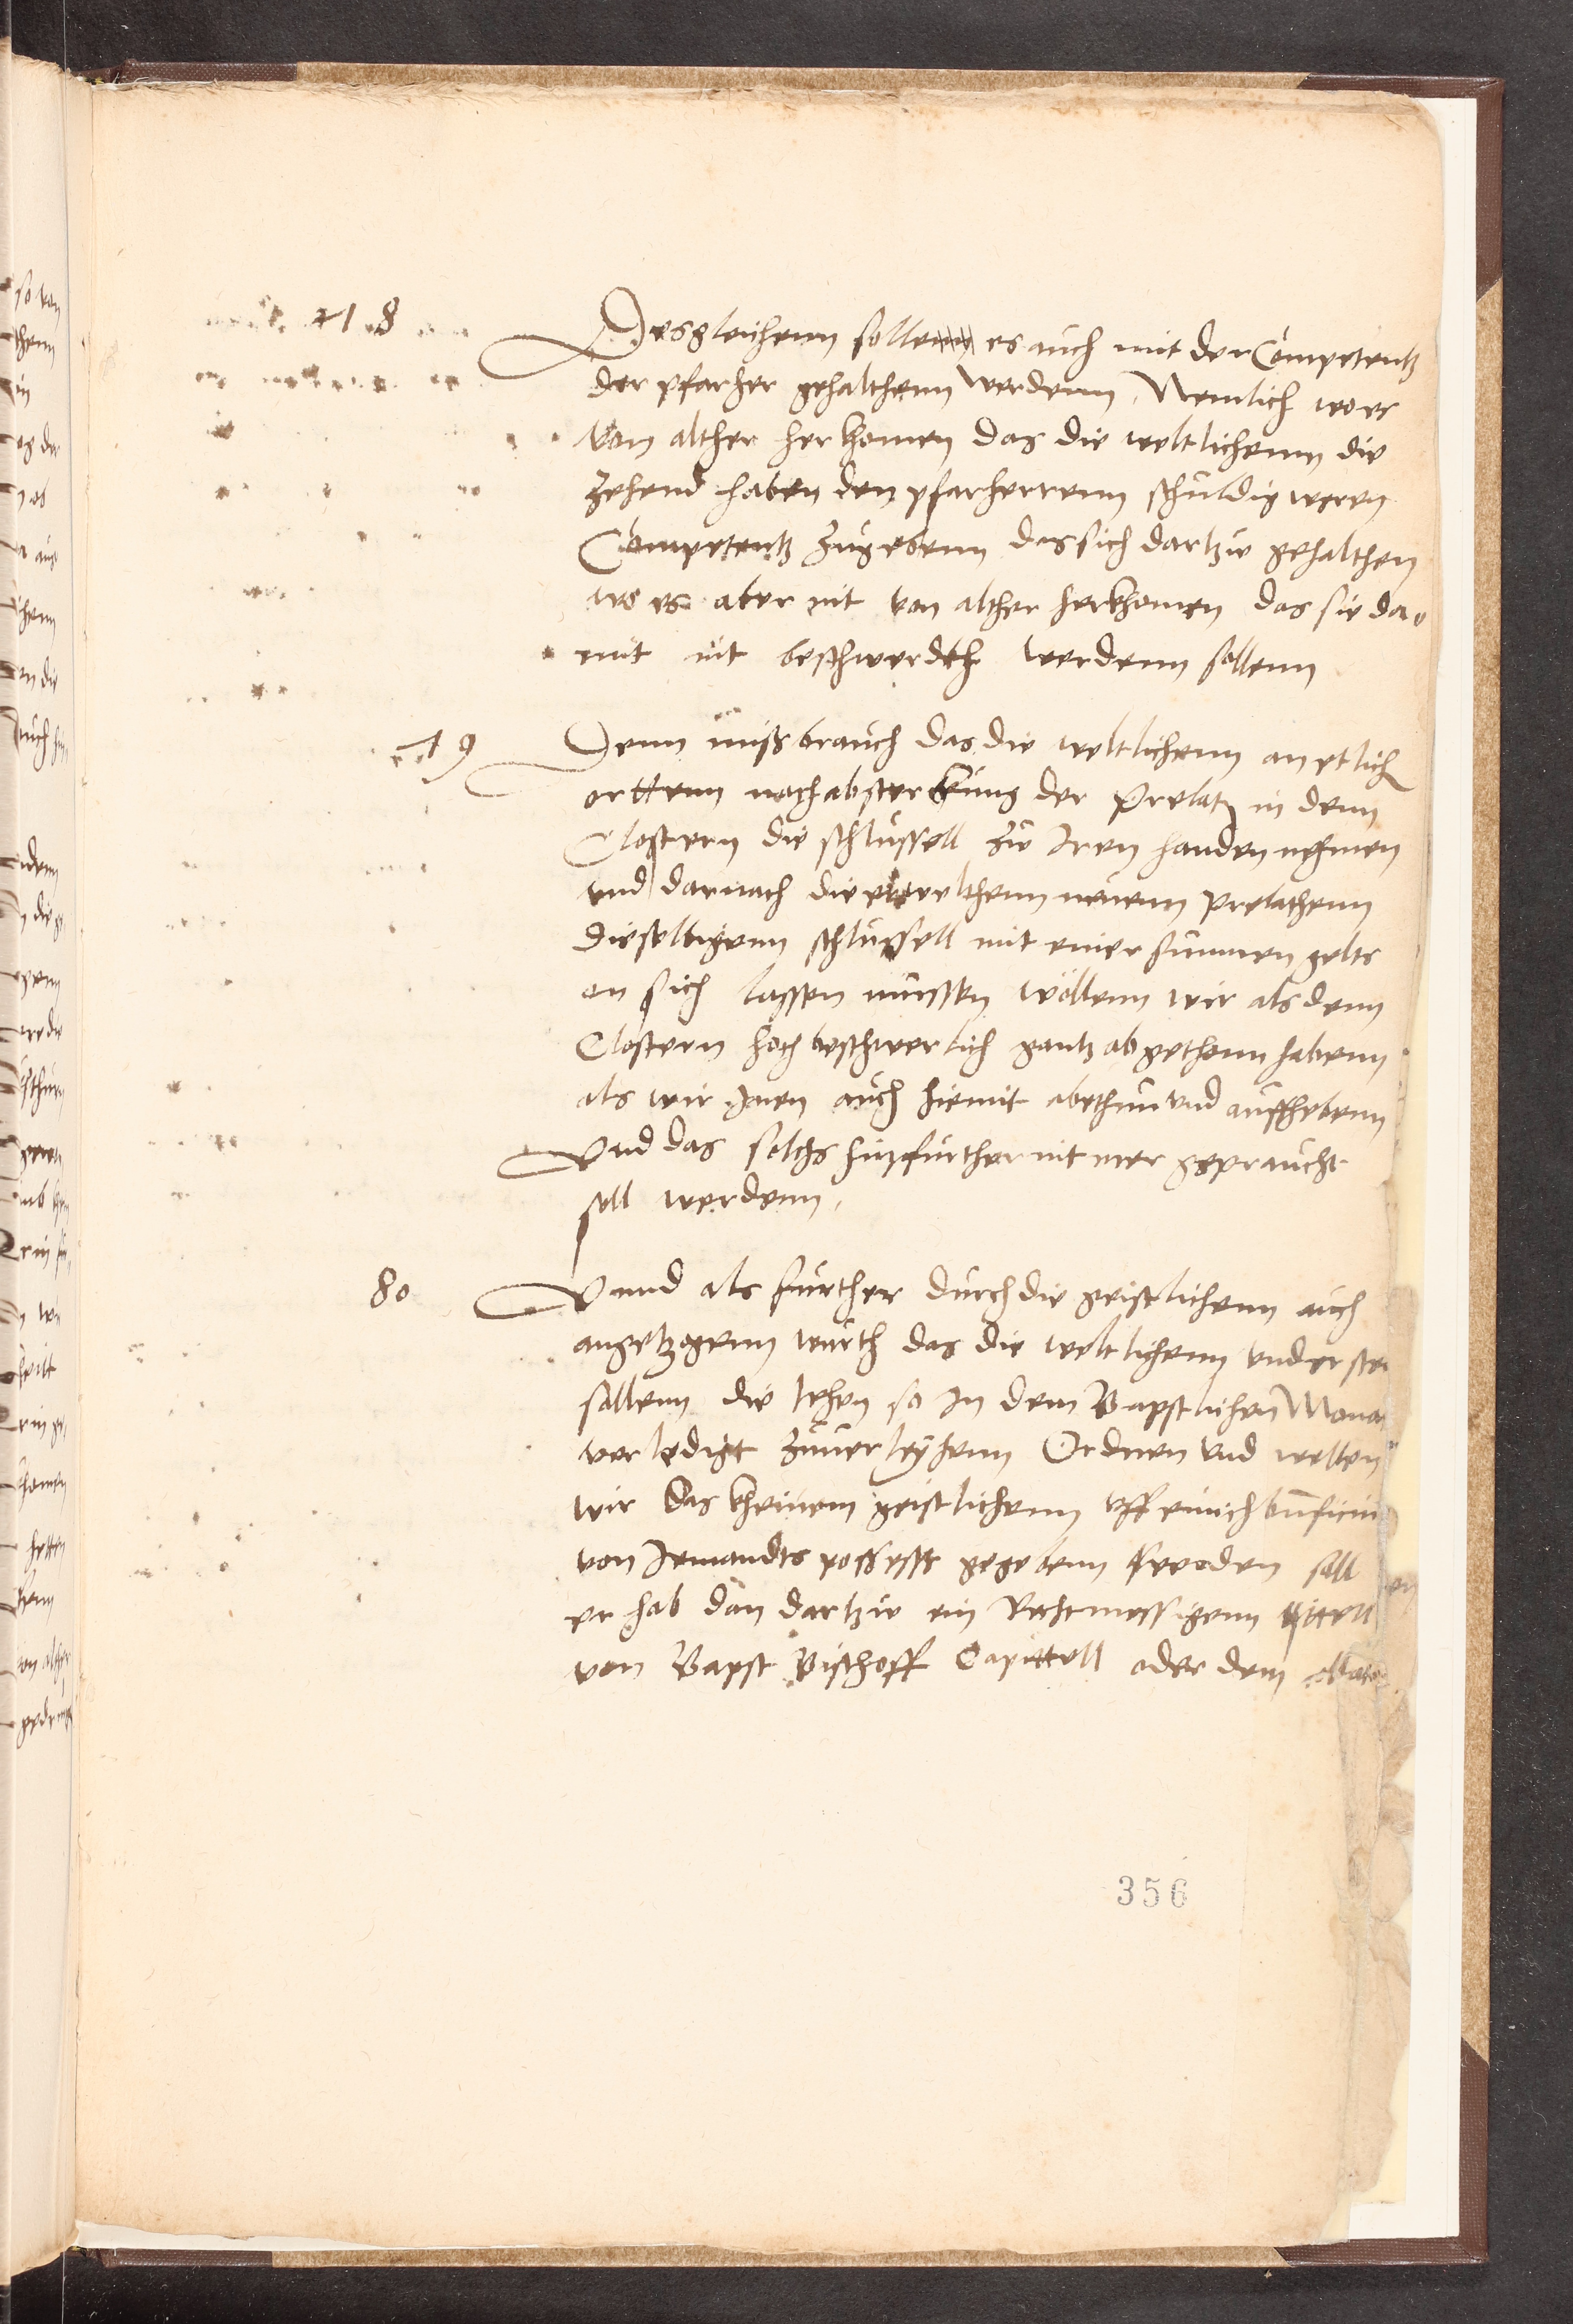 78
Desgleichenn solle es auch mit der Competentz
der pfarher gehalthenn werdenn, Nemlich wo es
von alther herkhomen das die weltlichenn die
zehend haben den pfarherrenn schuldig weren
Competentz zugebenn das sich dartzu gehalthen
wo es aber nit von alther herkhomen das sie da
mit nit beschwerdth werdenn sollenn
79
Denn missbrauch das die weltlichenn an etlich
orttenn nach absterbung der Prelatn in denn
Clostern die schlussell zu Iren handen nehmen
und darnach die erwelthenn neuenn prelathenn
dieselbigenn schlussell mit einer summen gelts
an sich lassen mussen wöllenn wir als denn
Clostern hoch beschwerlich gantz abgethonn habenn
als wir Inen auch hiemit abethun und auffhebenn
Und das solchs hinfurther nit mer gepraucht
soll werdenn,
80
Unnd als further durch die geistlichenn auch
angetzogenn wurth das die weltlichenn understen
sollenn die lehen so In dem Bapstlichen Mona
verledigt zuuerleyhenn Ordnen und wellen
wir das kheinem geistlichenn uff einich bnficiu
von Jemandts possess gegebenn werden soll
er hab dan dartzu ein Rechtmessigenn tittell
von Bapst Bischoff Capittell oder dem
356